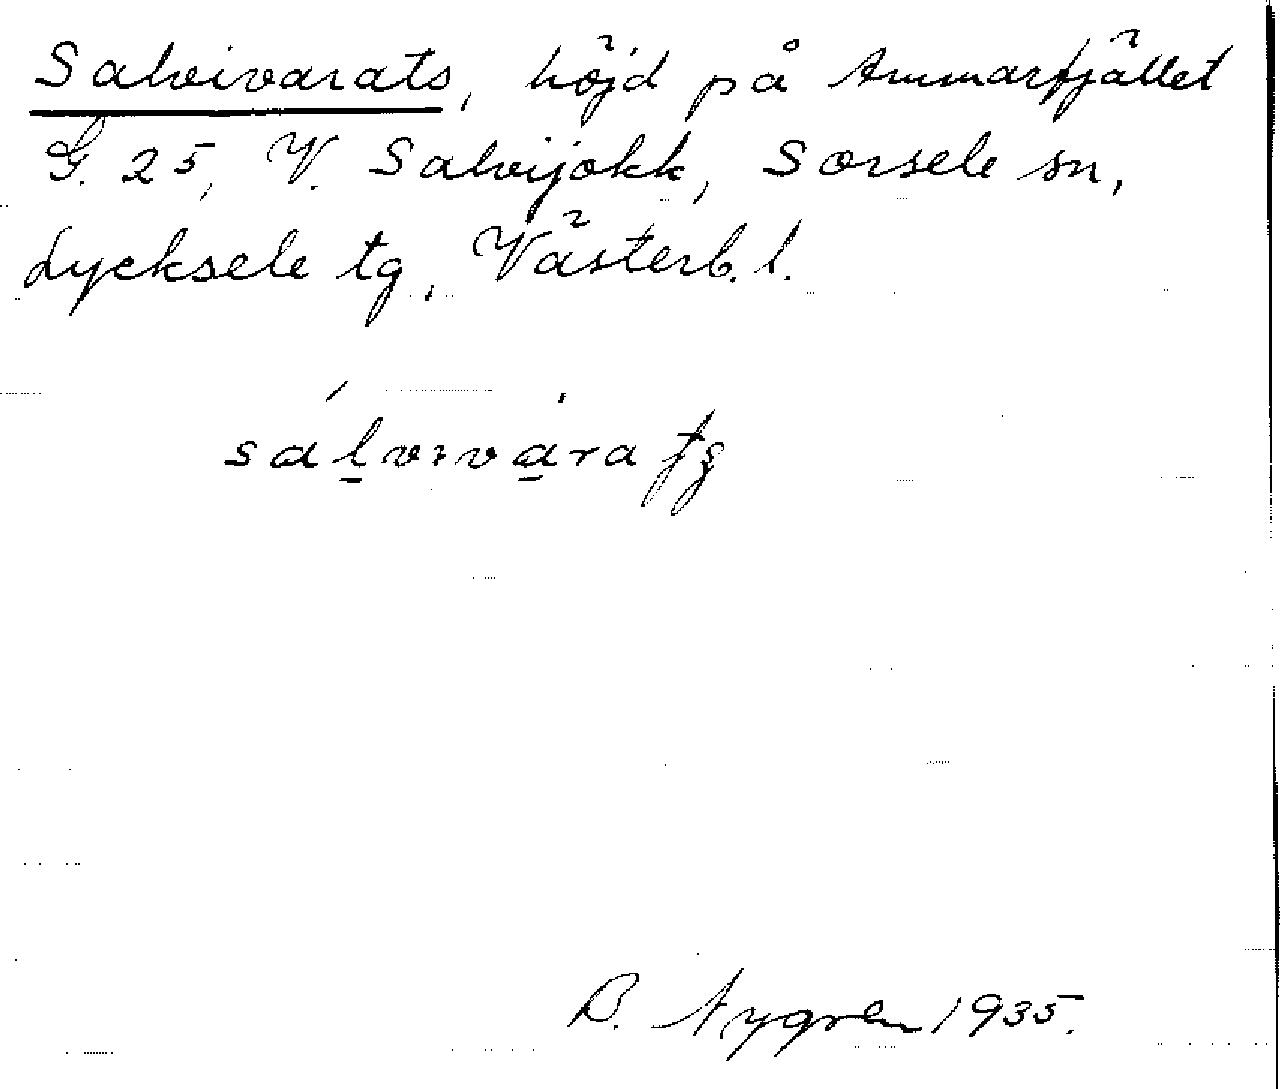 Salvivarats, höjd på Ammarfjället
G. 25, V. Salvijokk, Sorsele sn,
Lycksele tg, Västerb. l.
salvivarats
B. Nygren 1935.